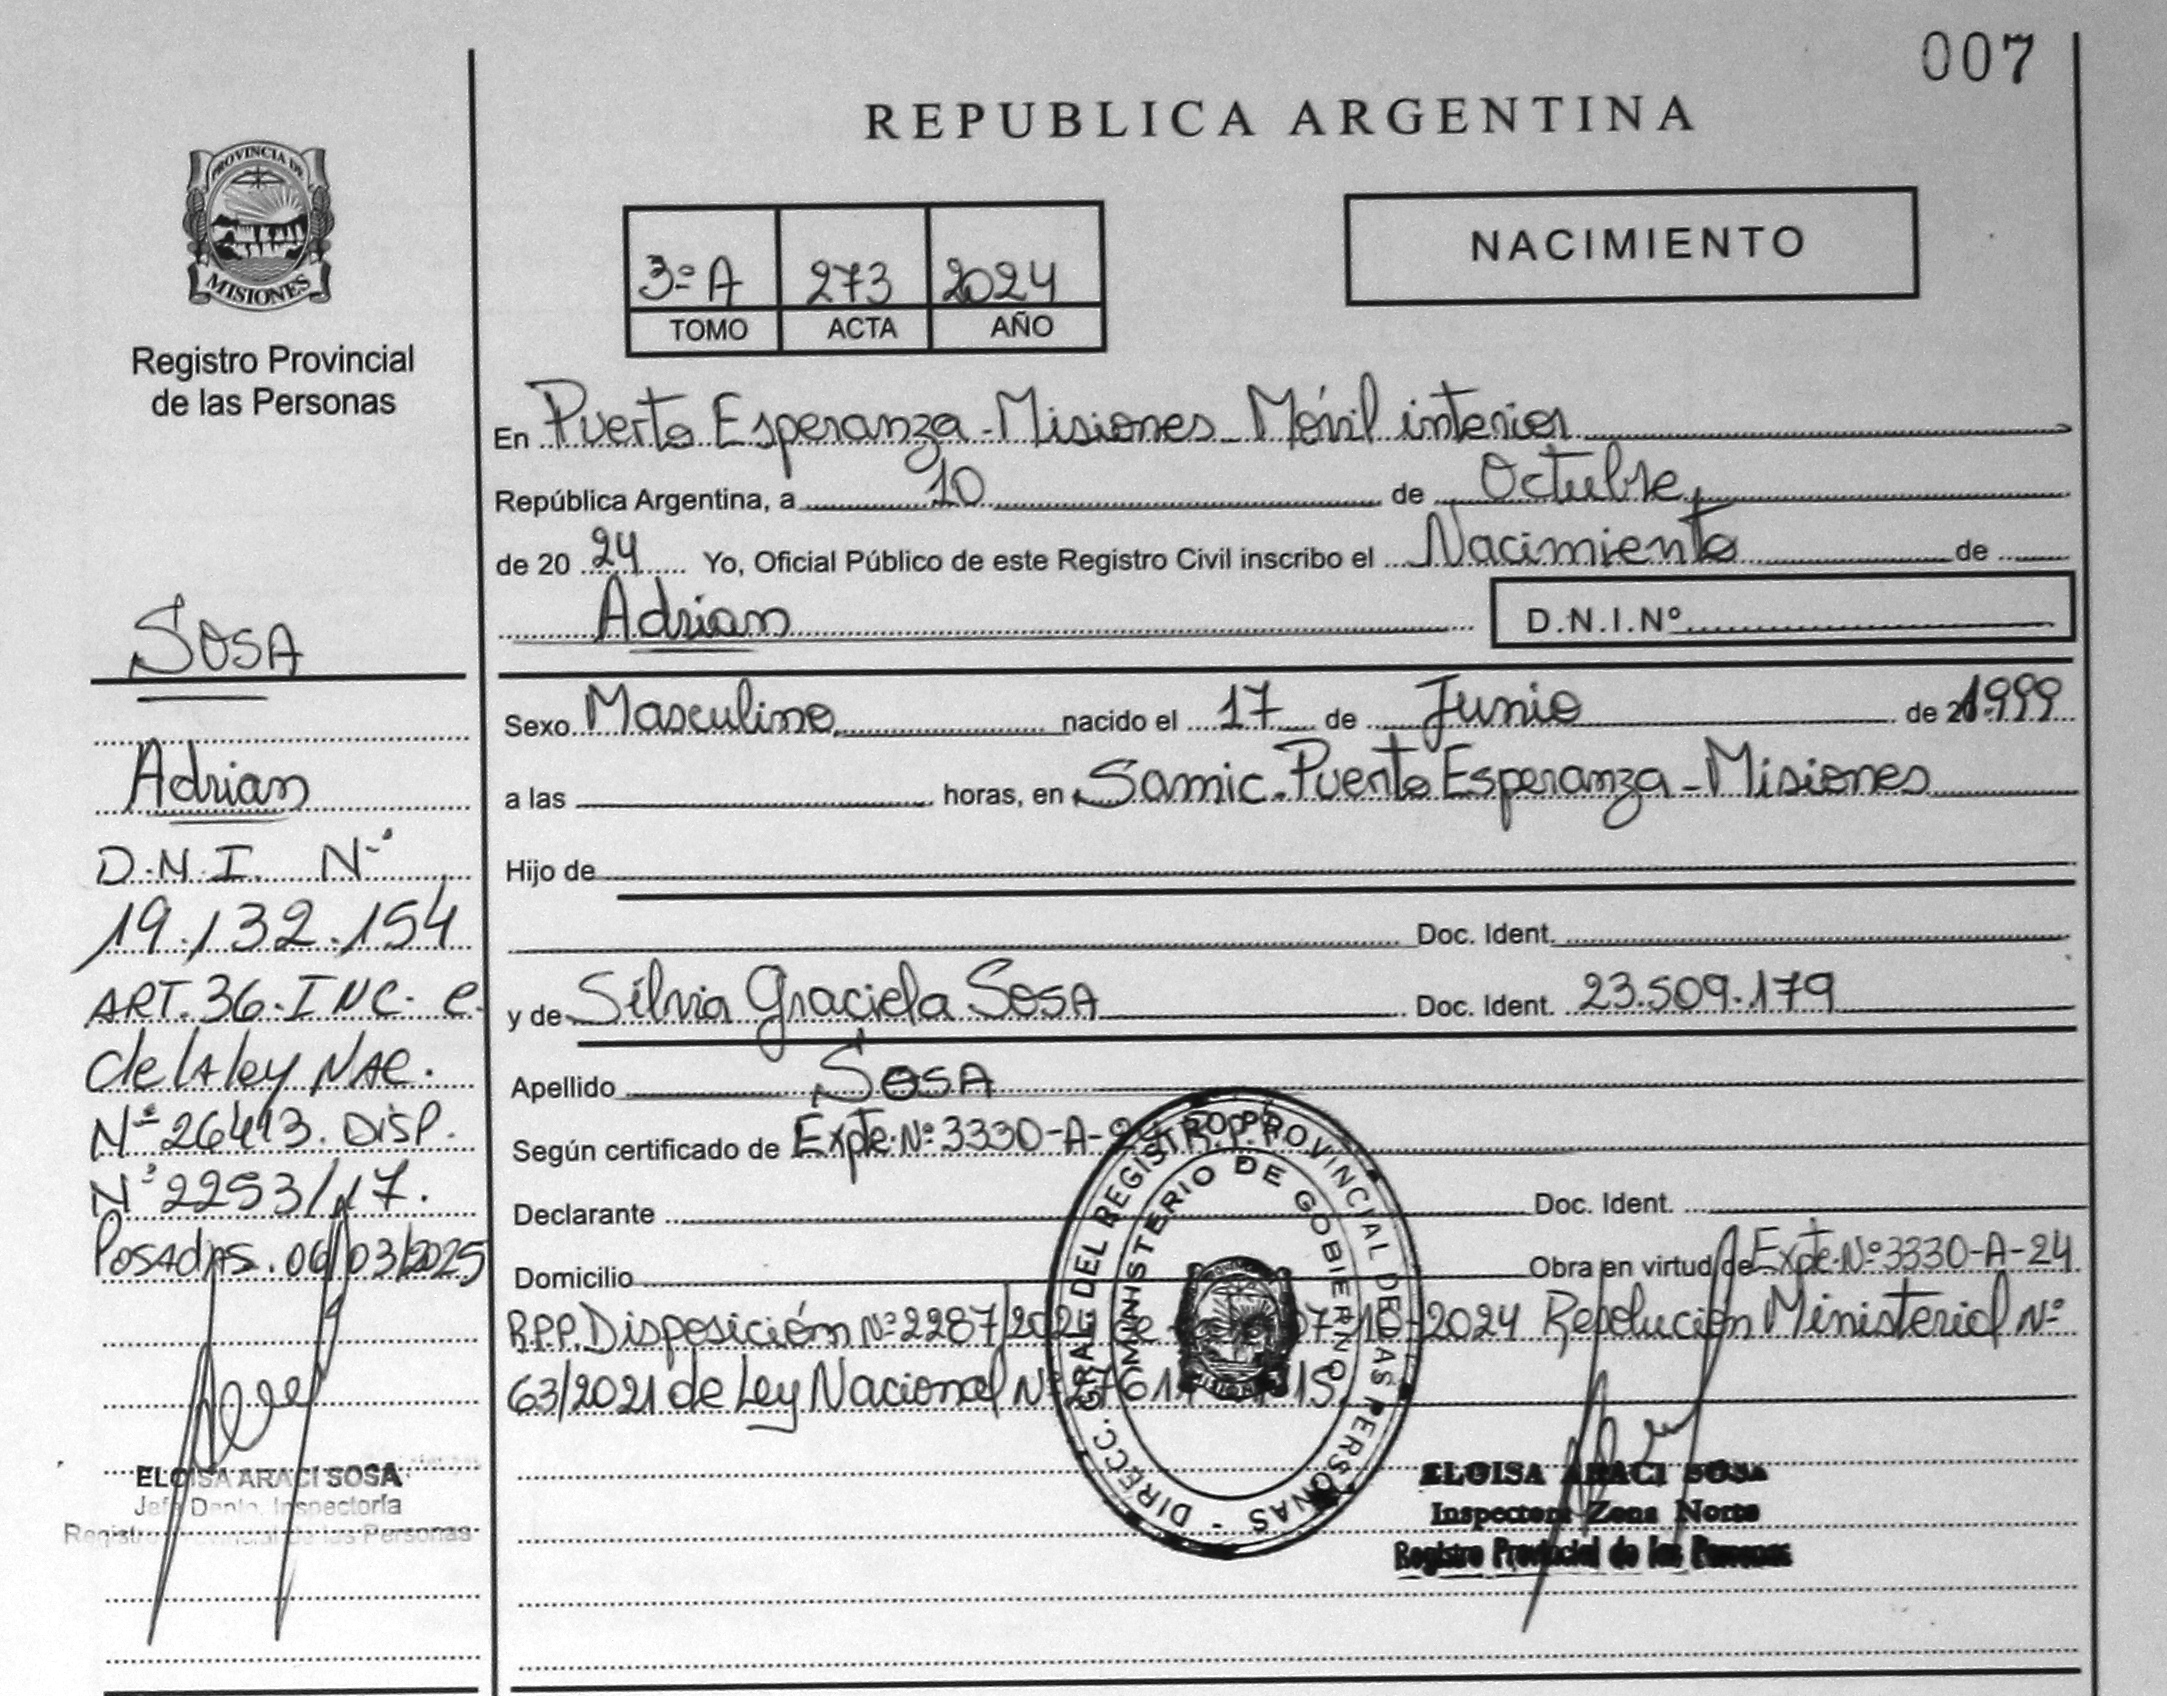 007
REPUBLICA ARGENTINA
PROVINCIA DE
MISIONES
Registro Provincial
de las Personas
3º A 273 2024
TOMO ACTA AÑO
NACIMIENTO
En Puerto Esperanza - Misiones Móvil interior
República Argentina, a 10 de Octubre,
de 20 24 Yo, Oficial Público de este Registro Civil inscribo el Nacimiento de
Adrian D.N.I.Nº
Sexo Masculino nacido el 17 de Junio de 1999
a las horas, en Samic. Puerto Esperanza - Misiones
Hijo de
Doc. Ident.
y de Silvia Graciela Sosa Doc. Ident. 23.509.179
Apellido Sosa
Según certificado de Expte. Nº 3330-A-
Declarante Doc. Ident.
Domicilio Obra en virtud de Expte. Nº 3330-A-24
R.P.P. Disposición Nº 2287/2024 de 07-10-2024 Resolución Ministerial Nº
63/2021 de Ley Nacional Nº
DIRECC. GRAL. DEL REGISTRO PROVINCIAL DE LAS PERSONAS -
MINISTERIO DE GOBIERNO
ELOISA ARACI SOSA
Inspectora Zona Norte
Registro Provincial de las Personas
SOSA
Adrian
D.N.I. Nº
19.132.154
ART. 36. INC. e.
de la ley NAC.
Nº 26413. DISP.
Nº 2253/17.
Posadas. 06/03/2025
ELOISA ARACI SOSA
Jefa Dpto. Inspectoría
Registro Provincial de las Personas